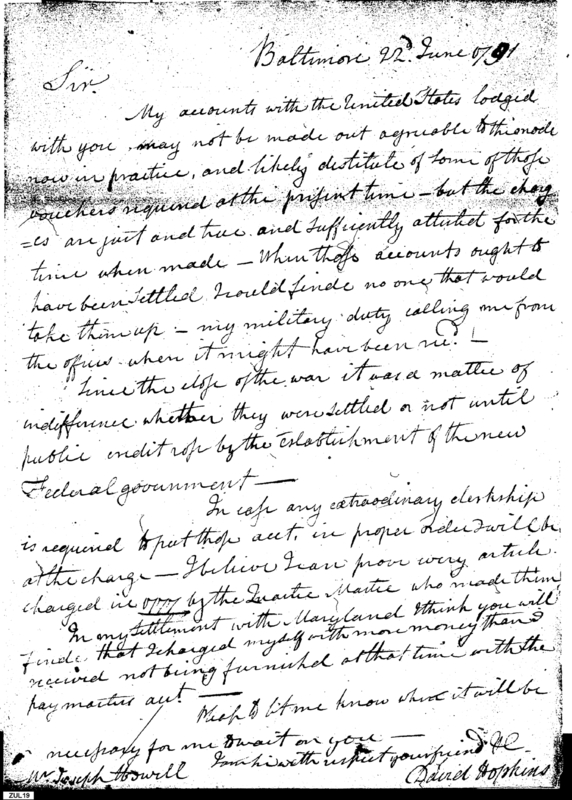 Baltimore 22d. June 1791
Sir.
My accounts with the United States lodged
with you may not be made out agreable to the mode
now in practice, and likely destitute of some of those
vouchers required at the present time – but the charg
=es are just and true and sufficiently attested for the
time when made – When those accounts ought to
have been settled I could finde no one that would
take them up – my military duty calling me from
the offices when it might have been
Since the close of the war it was a matter of
indifference whether they were settled or not until
public credit rose by the establishment of the new
Federal government —
In case any extraordinary clerkship
is required to put those acct. in proper order I will be
at the charge – I believe I can prove every article
charged in by the Quarter Master who made them
In my settlement with Maryland I think you will
finde, that I charged myself with more money than I
received not being furnished at that time with the
pay masters acct –
Please to let me know when it will be
necessary for me to wait on you —
I am Sir with respect your friend &c.
Mr. Joseph Howell
David Hopkins
ZUL19